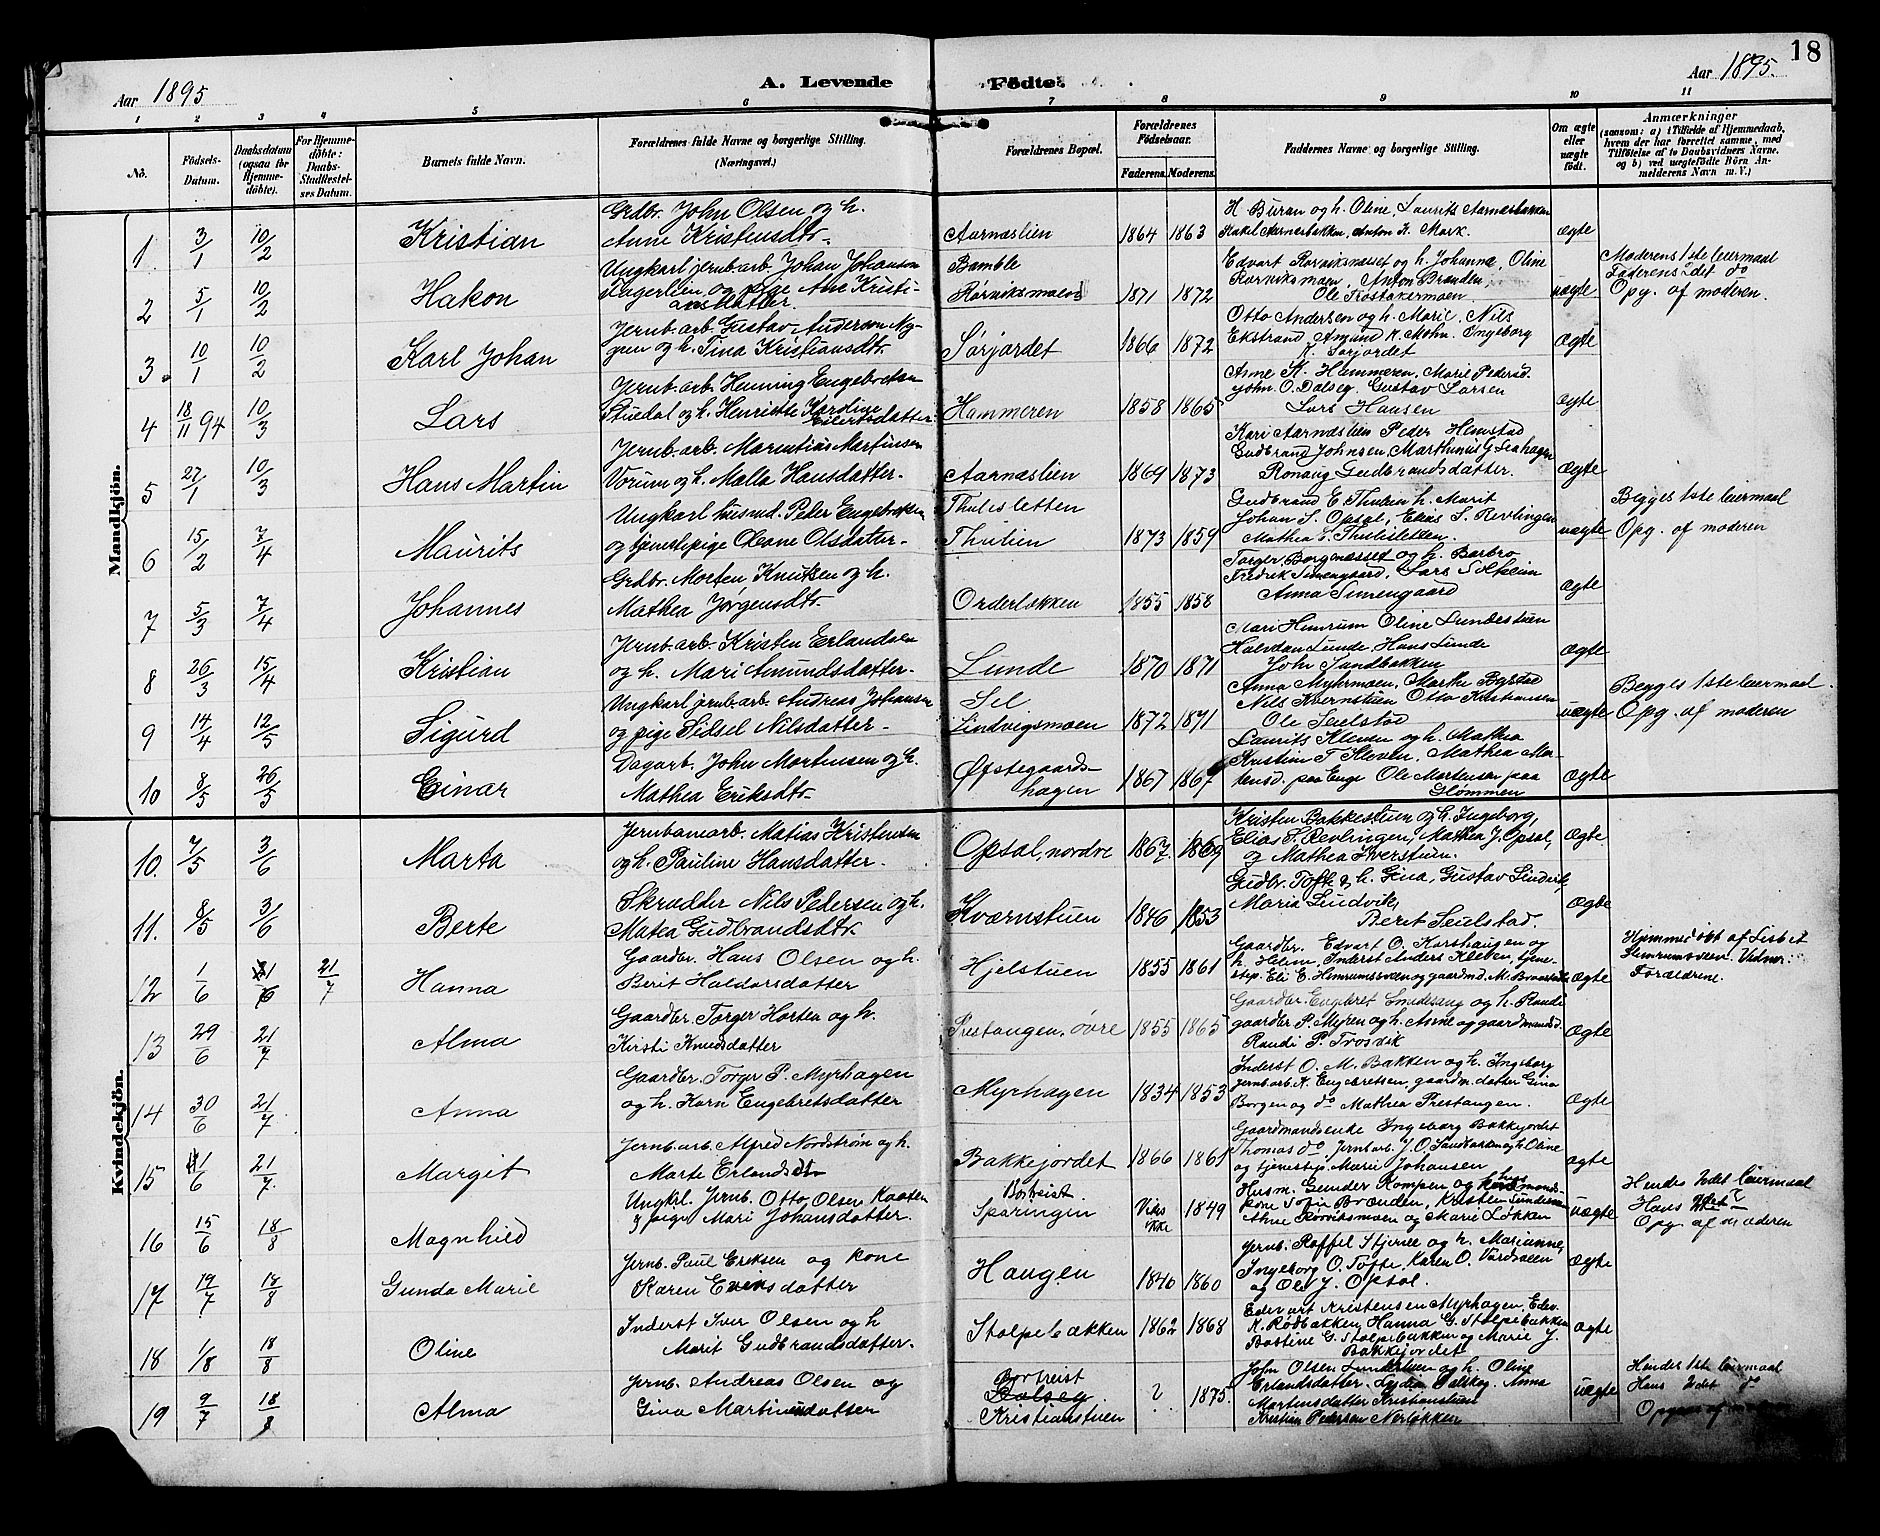 18
Aar 1895
A. Levende Fødte.
Aar 1895.
1 2 3 4 5 6 7 8 9 10 11
No.
Fødsels-Datum.
Daabsdatum (ogsaa for Hjemmedøbte).
For Hjemmedøbte: Daabs-Stadfæstelses Datum.
Barnets fulde Navn.
Forældrenes fulde Navne og borgerlige Stilling. (Næringsvei.)
Forældrenes Bopæl.
Forældrenes Fødselsaar.
Faderens. Moderens.
Faddernes Navne og borgerlige Stilling.
Om ægte eller uægte født.
Anmærkninger
(saasom: a) i Tilfælde af Hjemmedaab, hvem der har forrettet samme, med Tilføielse af to Daabsvidners Navne. og b) ved uægtefødte Børn Anmelderens Navn m. V.)
Mandkjøn.
1 3/1 10/2 Kristian Grdbr. John Olsen og h. Anne Kristensdtr. Aarnæslien 1864 1863 H Buran og h. Oline, Laurits Aarnæsbakken Anton K. Mork. ægte
2 5/1 10/2 Hakon Ungkarl jernb.arb. Johan Johanson og pige Ane Kristiansdatter Bamble Rørviksmoen 1871 1872 Edvart Rørviksnæsset og h. Johanna, Oline Rørviksmoen, Anton Branden, Ole Frostakermoen. uægte Moderens 1ste leiermaal Faderens 2det do Opg. af moderen.
3 10/1 10/2 Karl Johan Jernb.arb. Gustav Anderson Nygren og h. Tina Kristiansdtr. Sørjordet 1866 1872 Otto Andersen og h. Marie, Nils Ekstrand, Amund K. Mohn, Ingeborg K. Sørjordet ægte
4 18/11 94 10/3 Lars Jernb.arb. Henning Engebretsen Stuedal og h. Henriette Karoline Eilertsdatter Hammeren 1858 1865 Anne K. Hammeren, Marie Pedersd. John O. Dalseg, Gustav Larsen Lars Hansen ægte
5 27/1 10/3 Hans Martin Jernb.arb. Martinsen Vorum og h. Malla Hansdatter. Aarnæslien 1869 1873 Kari Aarnæslien Peder Hemstad Gudbrand Johnsen, Marthinus G. Seahagen Ronaug Gudbrandsdatter. ægte
6 15/2 7/4 Maurits Ungkarl husmd. Peter Engebretsen og tjenestepige Oleane Olsdatter. Thulisletten Thulien 1873 1859 Gudbrand E. Thulien h. Marit Johan S. Opsal, Elias S. Revlingen Mathea E. Thulisletten. uægte Begges 1ste leiermaal Opg. af moderen
7 5/3 7/4 Johannes Grdbr. Morten Knutsen og h. Mathea Jørgensdtr. Orderløkken 1855 1858 Torger Borgenæsset og h. Barbro Fredrik Simengaard, Lars Solheim Anna Simengaard ægte
8 26/3 15/4 Kristian Jernb.arb. Kristen Erlandsen og h. Mari Amundsdatter. Lunde 1870 1871 Mari Hemrum Oline Lundestuen Halvdan Lunde, Hans Lunde John Sandbakken ægte
9 14/4 12/5 Sigurd Ungkarl jernb.arb. Andreas Johansen og pige Sidsel Nilsdatter. Sel Lindvigsmoen 1872 1871 Anna Myhrmoen, Marthe Bøstad Nils Kvernstuen Otto Kristiansen Ole Seielstad uægte Begges 1ste leiermaal. Opg. af moderen
10 8/5 26/5 Einar Dagarb. John Mortensen og h. Mathea Eriksdtr. Østegaardshagen 1867 1867 Laurits Kleven og h. Mathea Kristian T Kleven, Mathea Mortensd. paa Enge Ole Mortensen paa Glommen ægte
Kvindekjøn.
10. 7/5 3/6 Marta Jernbanearb. Matias Kristensen og h. Pauline Hansdatter. Opsal, nordre 1867. 1869 Kristen Bakkestuen og h. Ingeborg, Elias S. Revlingen, Mathea J. Opsal, og Mathea Kverstuen. ægte
11. 8/5 3/6 Berte Skrædder Nils Pedersen og h. Matea Gudbrandsdtr. Kværnstuen 1846 1853 Gudbr. Tofte & h. Gina, Gustav Lindvik, Maria Lindvik, Berit Seielstad. ægte
12 1/6 21/7 Hanna Gaardbr. Hans Olsen og h. Berit Haldorsdatter Hjelstuen 1855 1861 Gaardbr. Edvart O. Korshaugen og h. Helene, Inderst Anders Kleven, tjenestep. Eli E. Hemrumsveen og gaardmd. M. ægte Hjemmedøbt af Lisbet Hemrumsveen. Vidner: Forældrene.
13 29/6 21/7 Alma Gaardbr. Torger Horten og h. Kirsti Knudsdatter Prestangen, øvre 1855 1865 Gaardbr. Engebret Smedesang og h. Randi gaardbr P. Myren og h. Anne og gaardmandsd. Randi P. Trosvik ægte
14 30/6 21/7 Anna Gaardbr. Torger P. Myrhagen og h. Karn Engebretsdatter Myrhagen 1834 1853 Inderst O. M. Bakken og h. Ingeborg jernb.arb. K. Engebretsen, gaardm. datter Gina Borgen og do Mathea Prestangen. ægte
15 11/6 21/7 Margit Jernb.arb. Alfred Nordstrøm og h. Marte Erlandsdt Bakkejordet 1866 1861 Gaardmandsenke Ingeborg Bakkejordet Thomas do, Jernb.arb. J. O. Sandbakken og h. Oline og tjenestep. Marie Johansen ægte
16 15/6 18/8 Magnhild Ungkrl. Jernb. Otto Olsen Kaasen & pige Mari Johansdatter. Bortreist Sparingen Vides ikke 1849 Husm. Gunder Kompen og husmandskone Sofie Brænden, Kristen Lundesveen Ane Rørviksmoen og Marie Løkken uægte Hendes 2det leiermaal Hans ? Opg. af moderen
17 19/7 18/8 Gunda Marie Jernb. Paul Eriksen og kone Karen Evensdatter Haugen 1840 1860 Jernb. Roffel Stjernee og h. Marianne, Ingeborg O. Tofte, Karen O. Vardsveen og Ole J. Opsal. ægte
18 1/8 18/8 Oline Inderst Iver Olsen og h Marit Gudbrandsdatter. Stolpebakken 1862 1868 Edevart Kristensen Myrhagen, Edev. K. Rødbakken, Hanna G. Stolpebakken Bastine G. Stolpebakken og Marie J. Bakkejordet ægte
19 9/7 18/8 Alma Jernb. Andreas Olsen og Gina Martinusdatter Bortreist Dalseg Kristianstuen ? 1875. John Olsen Lundestuen og h. Oline Erlandsdatter. Lydia Dalseg. Anna Martinsdatter Kristianstuen Kristian Pedersen Nerløkken uægte Hendes 1ste leiermaal Hans 2det do Opgivet af moderen